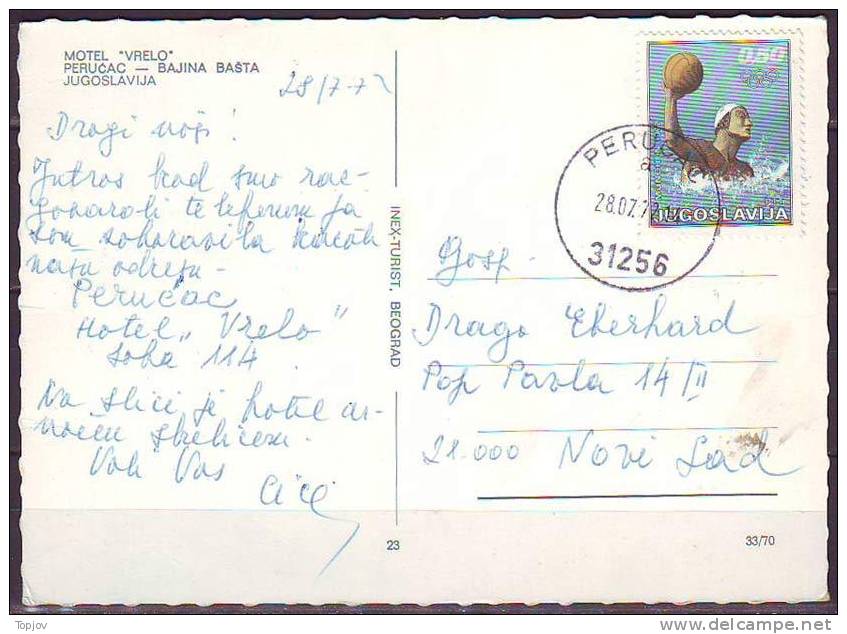 MOTEL "VRELO"
PERUĆAC — BAJINA BAŠTA
JUGOSLAVIJA
28/7-72
Dragi moji!
Jutros kad smo raz-
govarali telefonom ja
sam zaboravila kazati
našu adresu -
Perućac
Hotel „Vrelo"
soba 114
Na slici je hotel
Voli Vas
INEX-TURIST, BEOGRAD
23
0.80
JUGOSLAVIJA
PERUĆAC
a
28.07.7
31256
Gosp.
Drago Eberhard
Pop Pavla 14/II
21.000 Novi Sad
33/70
Topjov
www.delcampe.net